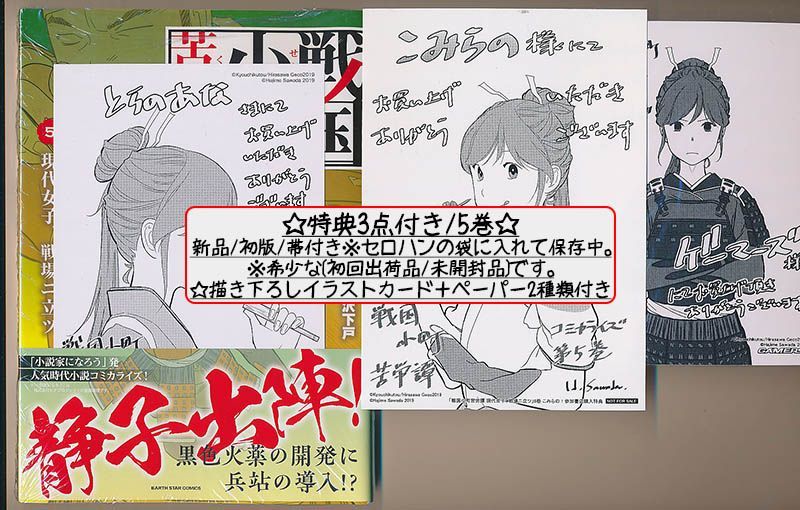 戦国
小
苦
くせ
5
現代女子
戦場ニ立ツ
沢下戸
©Kyouchikutou/Hirasawa Geco2019
©Hajime Sawada 2019
とらのあな
さまにて
お買い上げ
いただき
ありがとう
ございます
戦国小町
こみらの 様にて
お買い上げ
いただき
ありがとう
ございます
戦国
小町
苦労譚
コミカライズ
第5巻
H. Sawada.
©Kyouchikutou/Hirasawa Geco2019
©Hajime Sawada 2019
NOT FOR SALE
ゲーマーズ
様
にてお買い上げ頂き
ありがとうございます
©Kyouchikutou/Hirasawa Geco2019
©Hajime Sawada 2019
GAMERS
☆特典3点付き/5巻☆
新品/初版/帯付き※セロハンの袋に入れて保存中。
※希少な(初回出荷品/未開封品)です。
☆描き下ろしイラストカード＋ペーパー2種類付き
「小説家になろう」発
人気時代小説コミカライズ！
静子出陣!
黒色火薬の開発に
兵站の導入!?
EARTH STAR COMICS